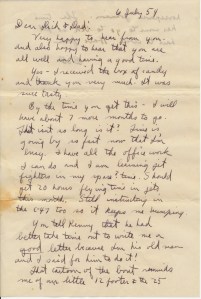 6 July 54
Dear Dick & Dad:
Very happy to hear from you
and also happy to hear that you are
all well and having a good time.
Yes - I received the box of candy
and thank you very much. It was
sure tasty
By the time you get this - I will
have about 7 more months to go.
That isn't so long is it? Time is
going by so fast now that I'm
busy. I have all the office work
I can do and I am learning jet
fighters in my "spare" time. I should
get 20 hours flying time in jets
this month. Still instructing in
the C47 too so it keeps me jumping
You tell Kenny that he had
better take time out to write me a
good letter because I'm his old man
and I said for him to do it!
That cartoon of the boat reminds
me of our little 12 footer & the 25